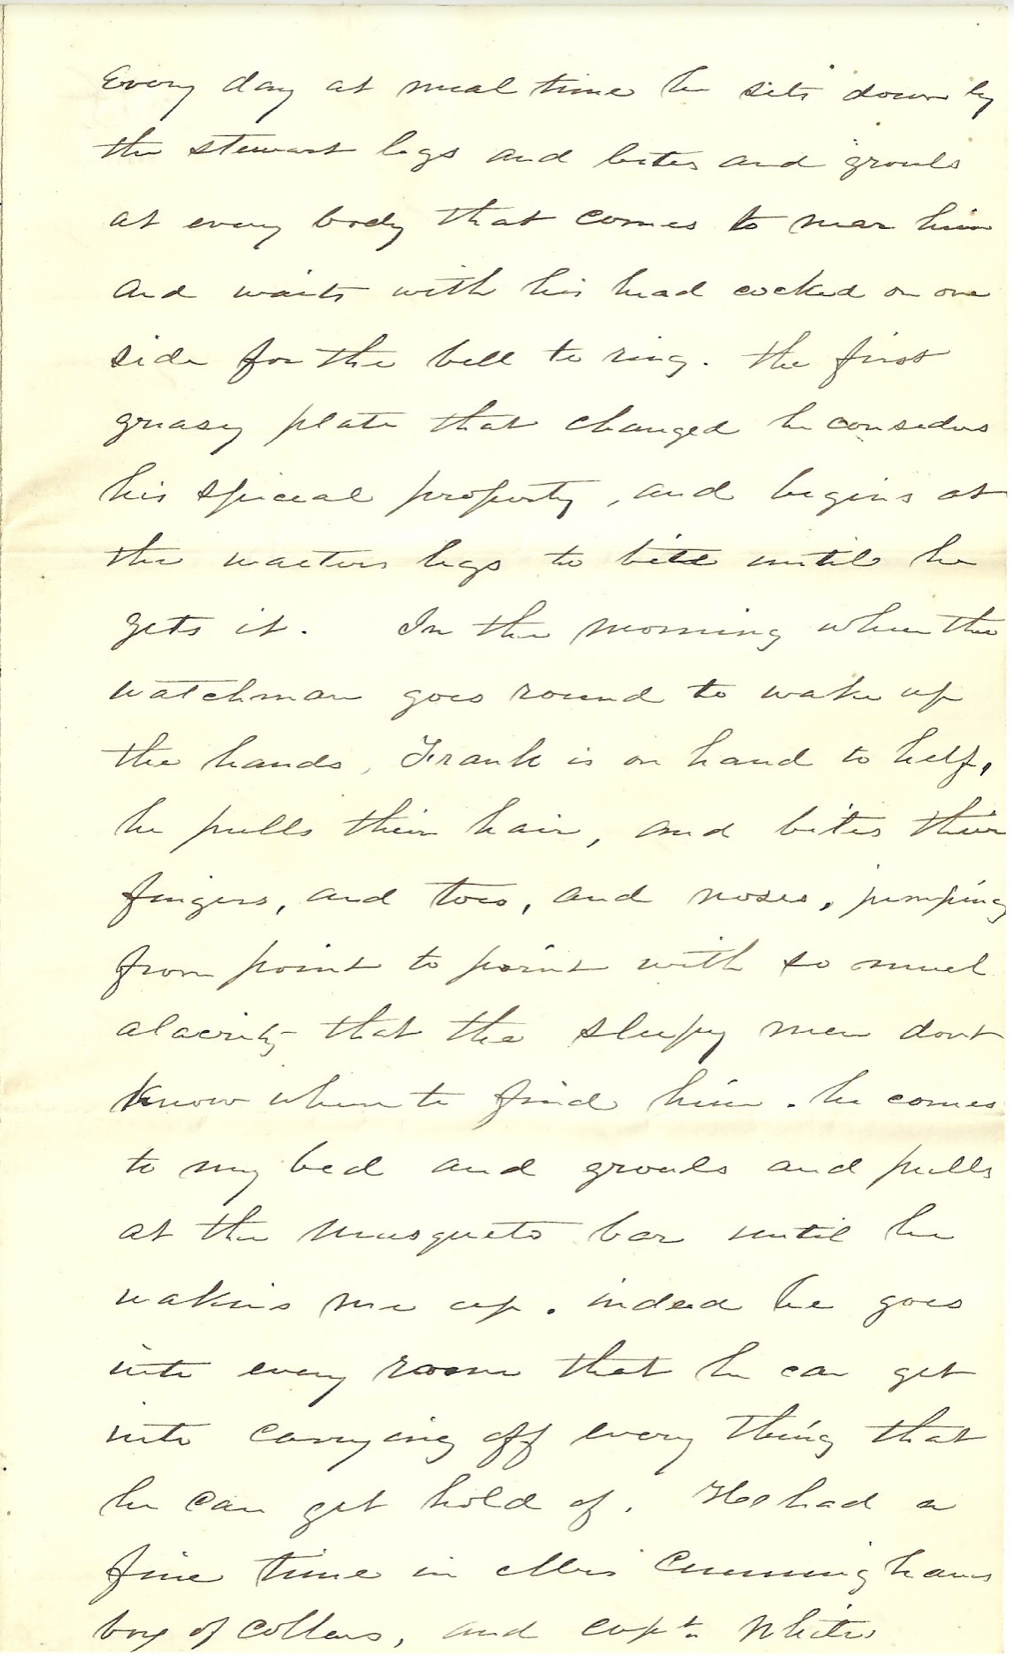 Every day at meal time he sits down by
the stewart legs and bites and growls
at every body that comes to near him
and waits with his head cocked on one
side for the bell to ring. the first
greasy plate that changed he considers
his special property, and begins at
the waiters legs to bite until he
gets it. In the morning when the
watchman goes round to wake up
the hands, Frank is on hand to help,
he pulls their hair, and bites their
fingers, and toes, and noses, jumping
from point to point with so much
alacrity that the sleepy men dont
know where to find him. he comes
to my bed and growls and pulls
at the musqueto bar until he
wakins me up. indeed he goes
into every room that he can get
into carrying off every thing that
he can get hold of. He had a
fine time in Mrs Cunninghams
box of collars, and capt. Whites